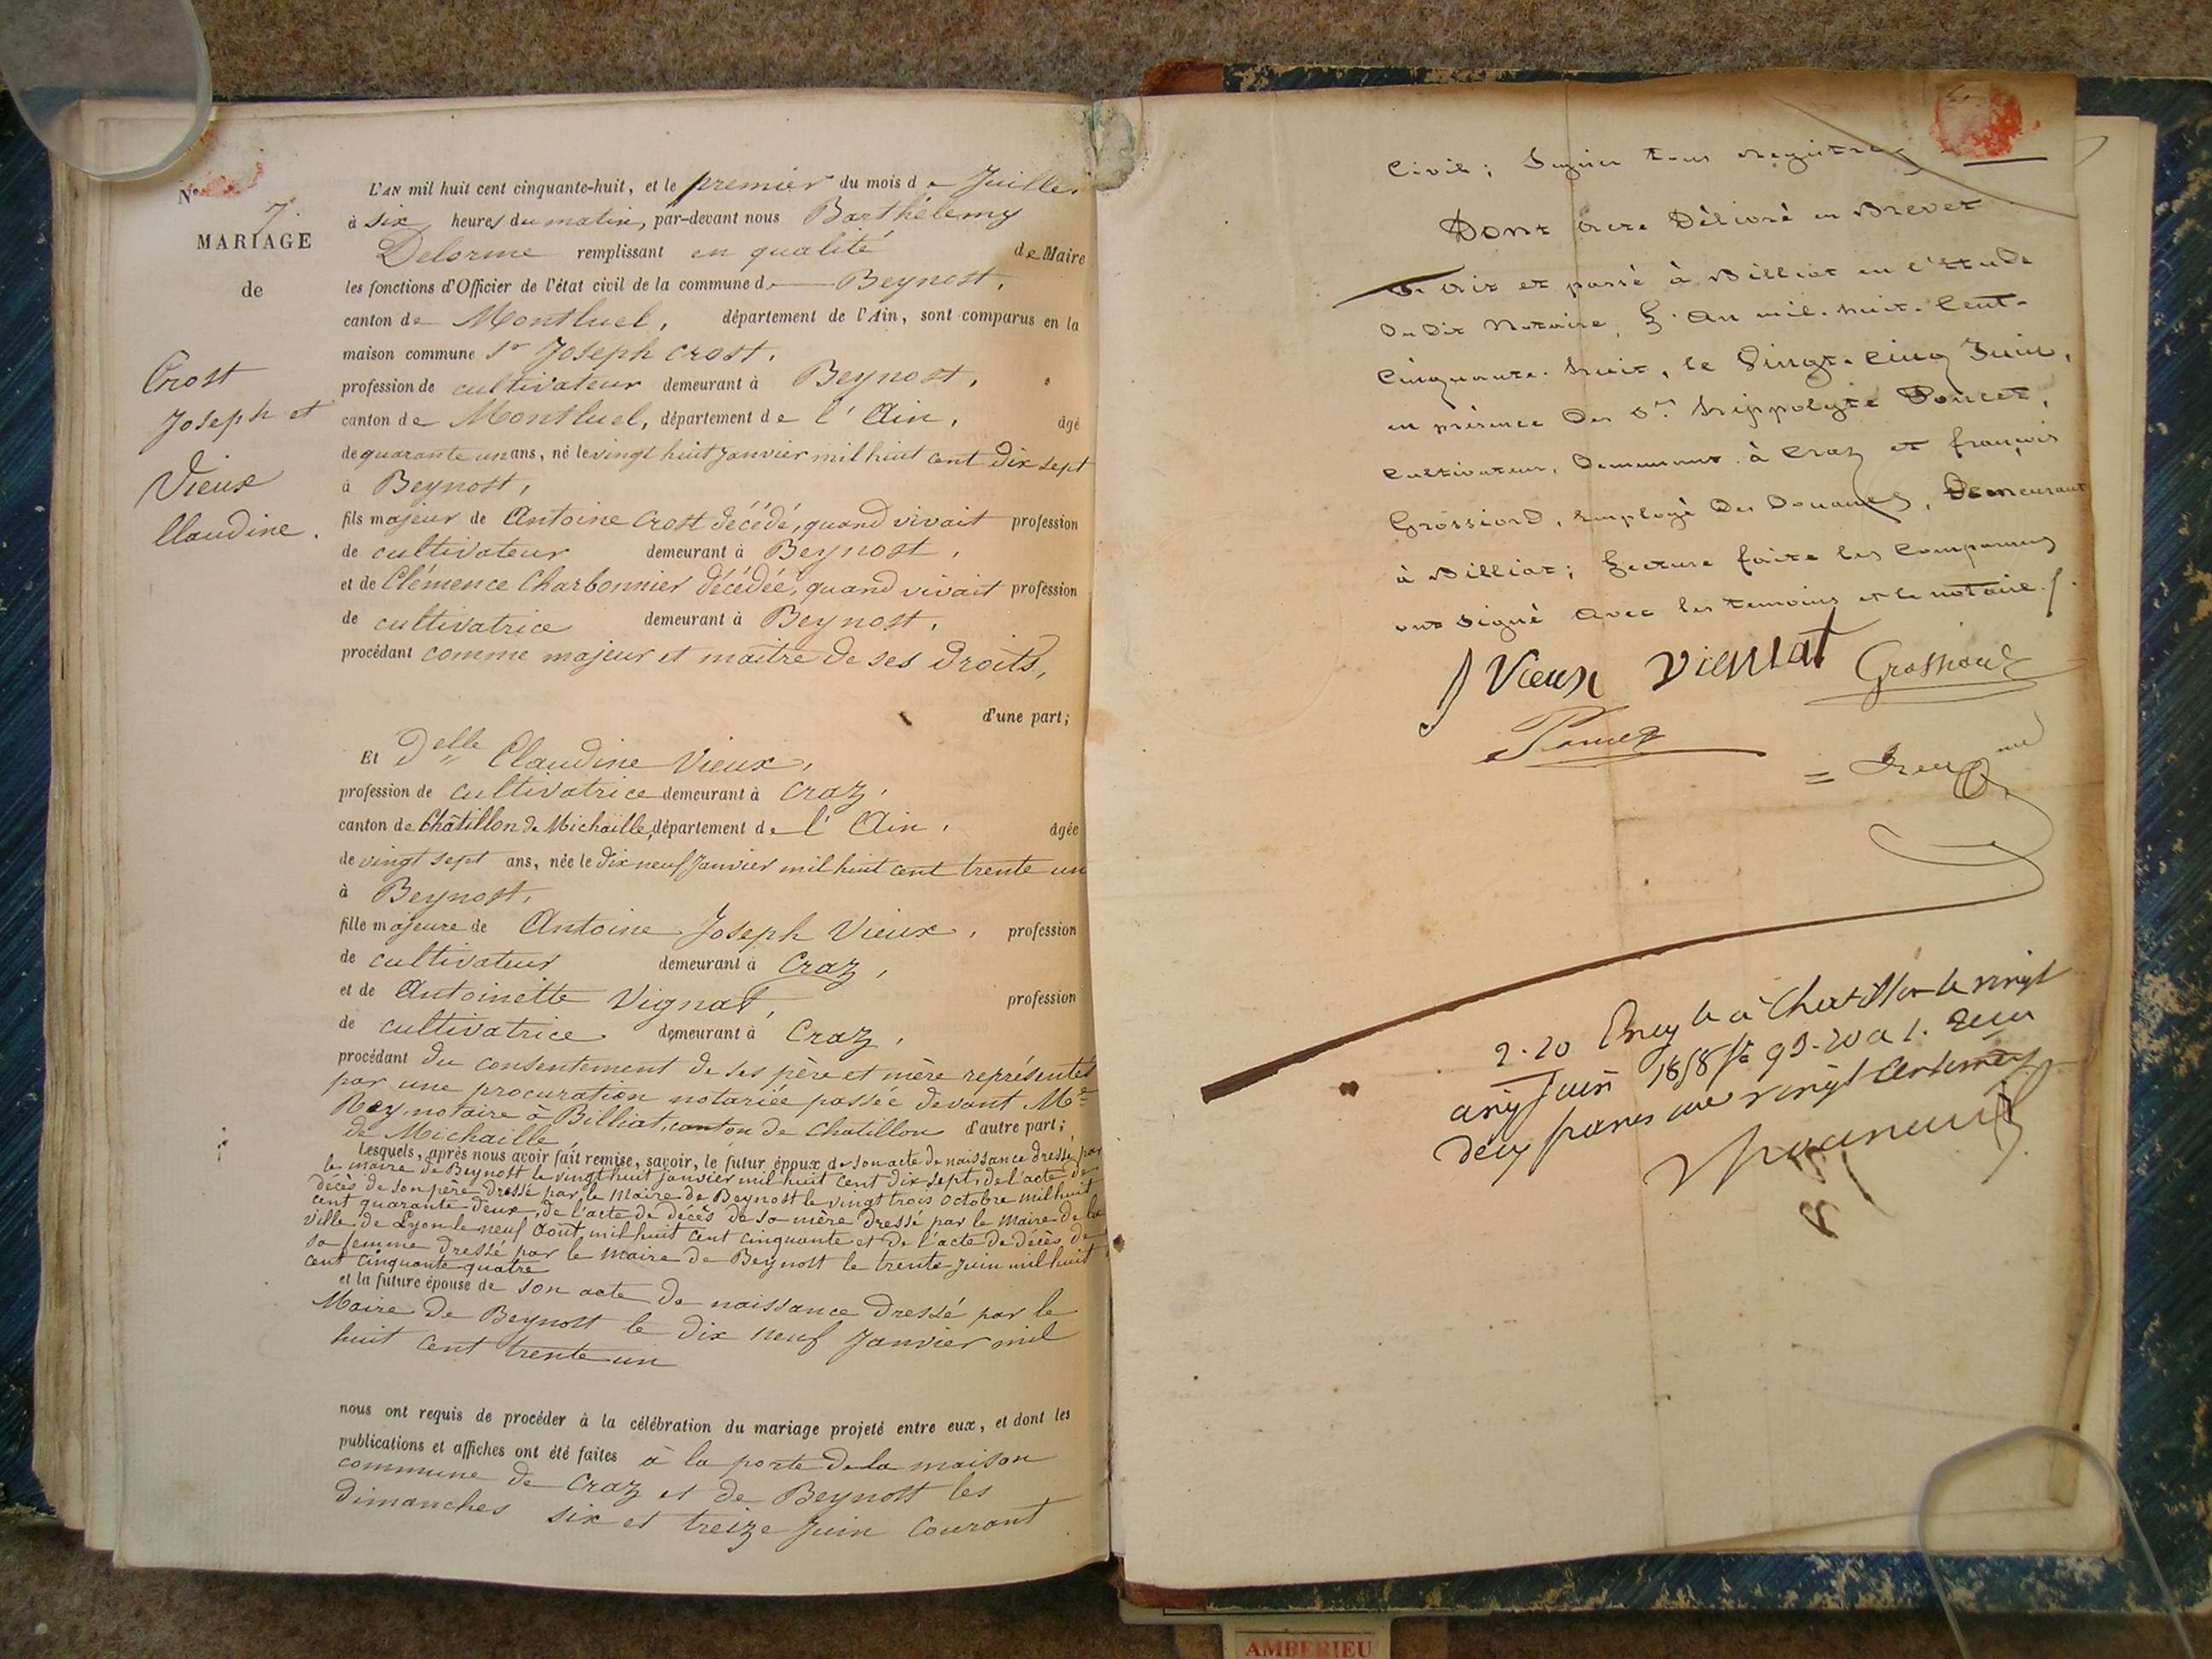 N°
7.
MARIAGE
de
Crost
Joseph et
Vieux
Claudine.
L'AN mil huit cent cinquante-huit, et le premier du mois de Juillet
à six heures du matin, par-devant nous Barthélemy
Delorme remplissant en qualité de Maire
les fonctions d'Officier de l'état civil de la commune de Beynost,
canton de Montluel, département de l'Ain, sont comparus en la
maison commune Sr Joseph Crost,
profession de cultivateur demeurant à Beynost,
canton de Montluel, département de l'Ain, âgé
de quarante un ans, né le vingt huit Janvier mil huit cent dix sept
à Beynost,
fils majeur de Antoine Crost décédé, quand vivait profession
de cultivateur demeurant à Beynost,
et de Clémence Charbonnier décédée, quand vivait profession
de cultivatrice demeurant à Beynost,
procédant comme majeur et maître de ses droits,
d'une part;
Et Delle Claudine Vieux,
profession de cultivatrice demeurant à Craz,
canton de Châtillon de Michaille, département de l'Ain, âgée
de vingt sept ans, née le dix neuf Janvier mil huit cent trente un
à Beynost,
fille majeure de Antoine Joseph Vieux, profession
de cultivateur demeurant à Craz,
et de Antoinette Vignat, profession
de cultivatrice demeurant à Craz,
procédant du consentement de ses père et mère représentés
par une procuration notariée passée devant Me
Rey, notaire à Billiat, canton de Chatillon d'autre part;
de Michaille,
Lesquels, après nous avoir fait remise, savoir, le futur époux de son acte de naissance dressé par
le maire de Beynost le vingt huit janvier mil huit cent dix sept, de l'acte de
décès de son père dressé par le Maire de Beynost le vingt trois octobre mil huit
cent quarante deux, de l'acte de décès de sa mère dressé par le Maire de la
ville de Lyon le neuf Août mil huit cent cinquante et de l'acte de décès de
sa femme dressé par le maire de Beynost le trente juin mil huit
cent cinquante quatre
et la future épouse de son acte de naissance dressé par le
Maire de Beynost le dix neuf Janvier mil
huit cent trente un
nous ont requis de procéder à la célébration du mariage projeté entre eux, et dont les
publications et affiches ont été faites à la porte de la maison
commune de Craz et de Beynost les
dimanches six et treize Juin courant
Civil; Signer tous registres
Dont acte Délivré en Brevet
Fait et passé à Billiat en l'étude
du dit Notaire, L'an mil-huit-cent-
cinquante-huit, le vingt-cinq Juin,
en présence des Srs hippolyte Poncet,
cultivateur, demeurant à Craz et françois
Grossiord, employé des Douanes, demeurant
à Billiat; Lecture faite les comparants
ont signé avec les témoins et le notaire ./.
J Vieux Vignat Grossiord
Poncet
2.20 Enreg le à Chatillon le vingt
cinq Juin 1858 fo 93. Reçu
deux francs vingt centimes
AMBERIEU